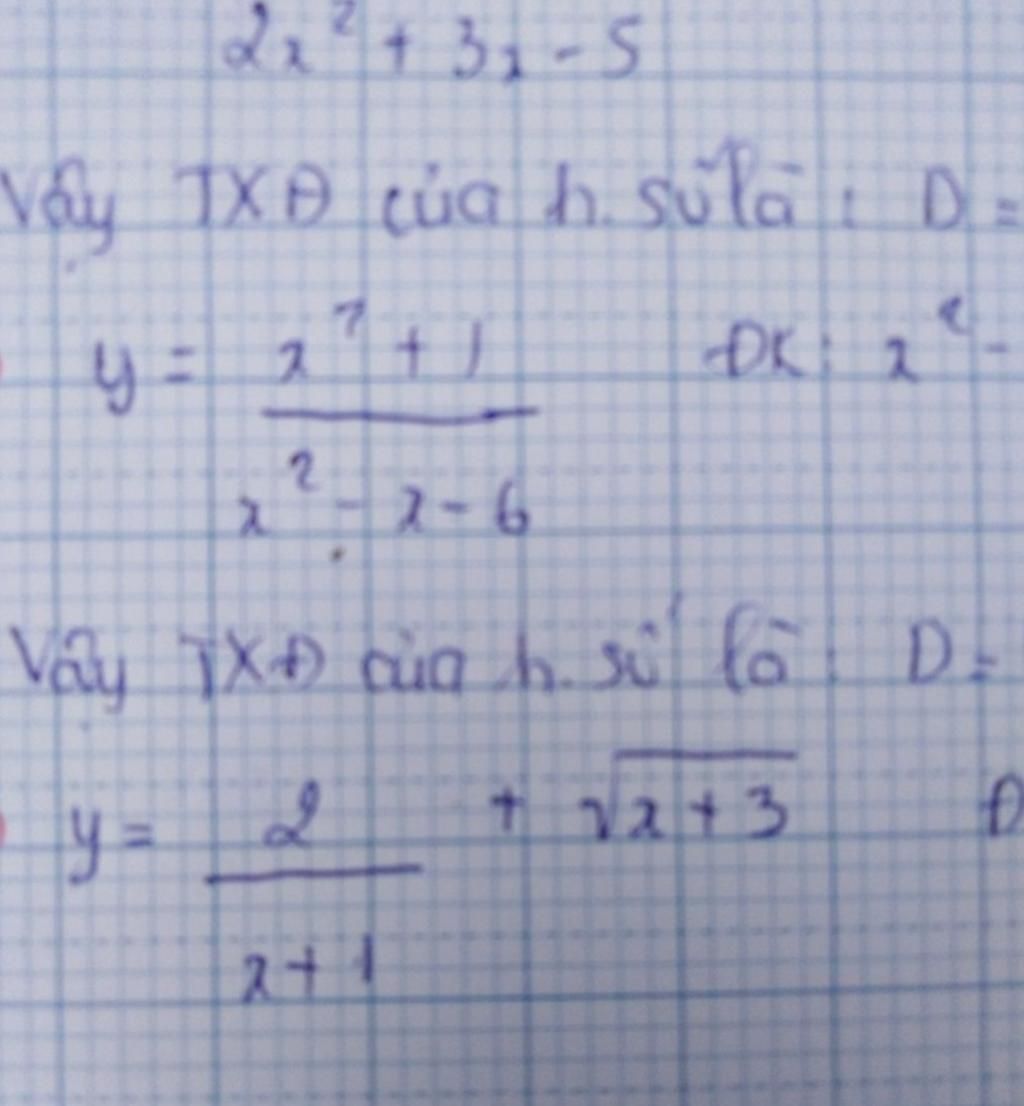 2x² + 3x - 5
Vậy TXĐ của h. số là : D =
y = x² + 1 ĐK: x² -
x² - x - 6
Vậy TXĐ của h. số là : D =
y = 2 + √x + 3 Đ
x + 1